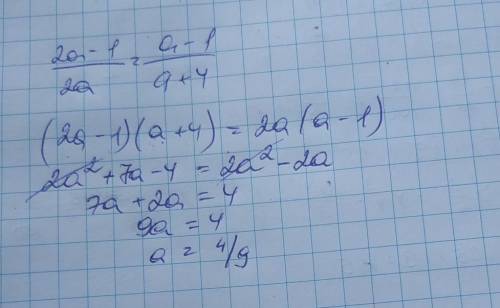 (2a-1)/2a = (a-1)/(a+4)
(2a-1)(a+4) = 2a(a-1)
2a² + 7a - 4 = 2a² - 2a
7a + 2a = 4
9a = 4
a = 4/9